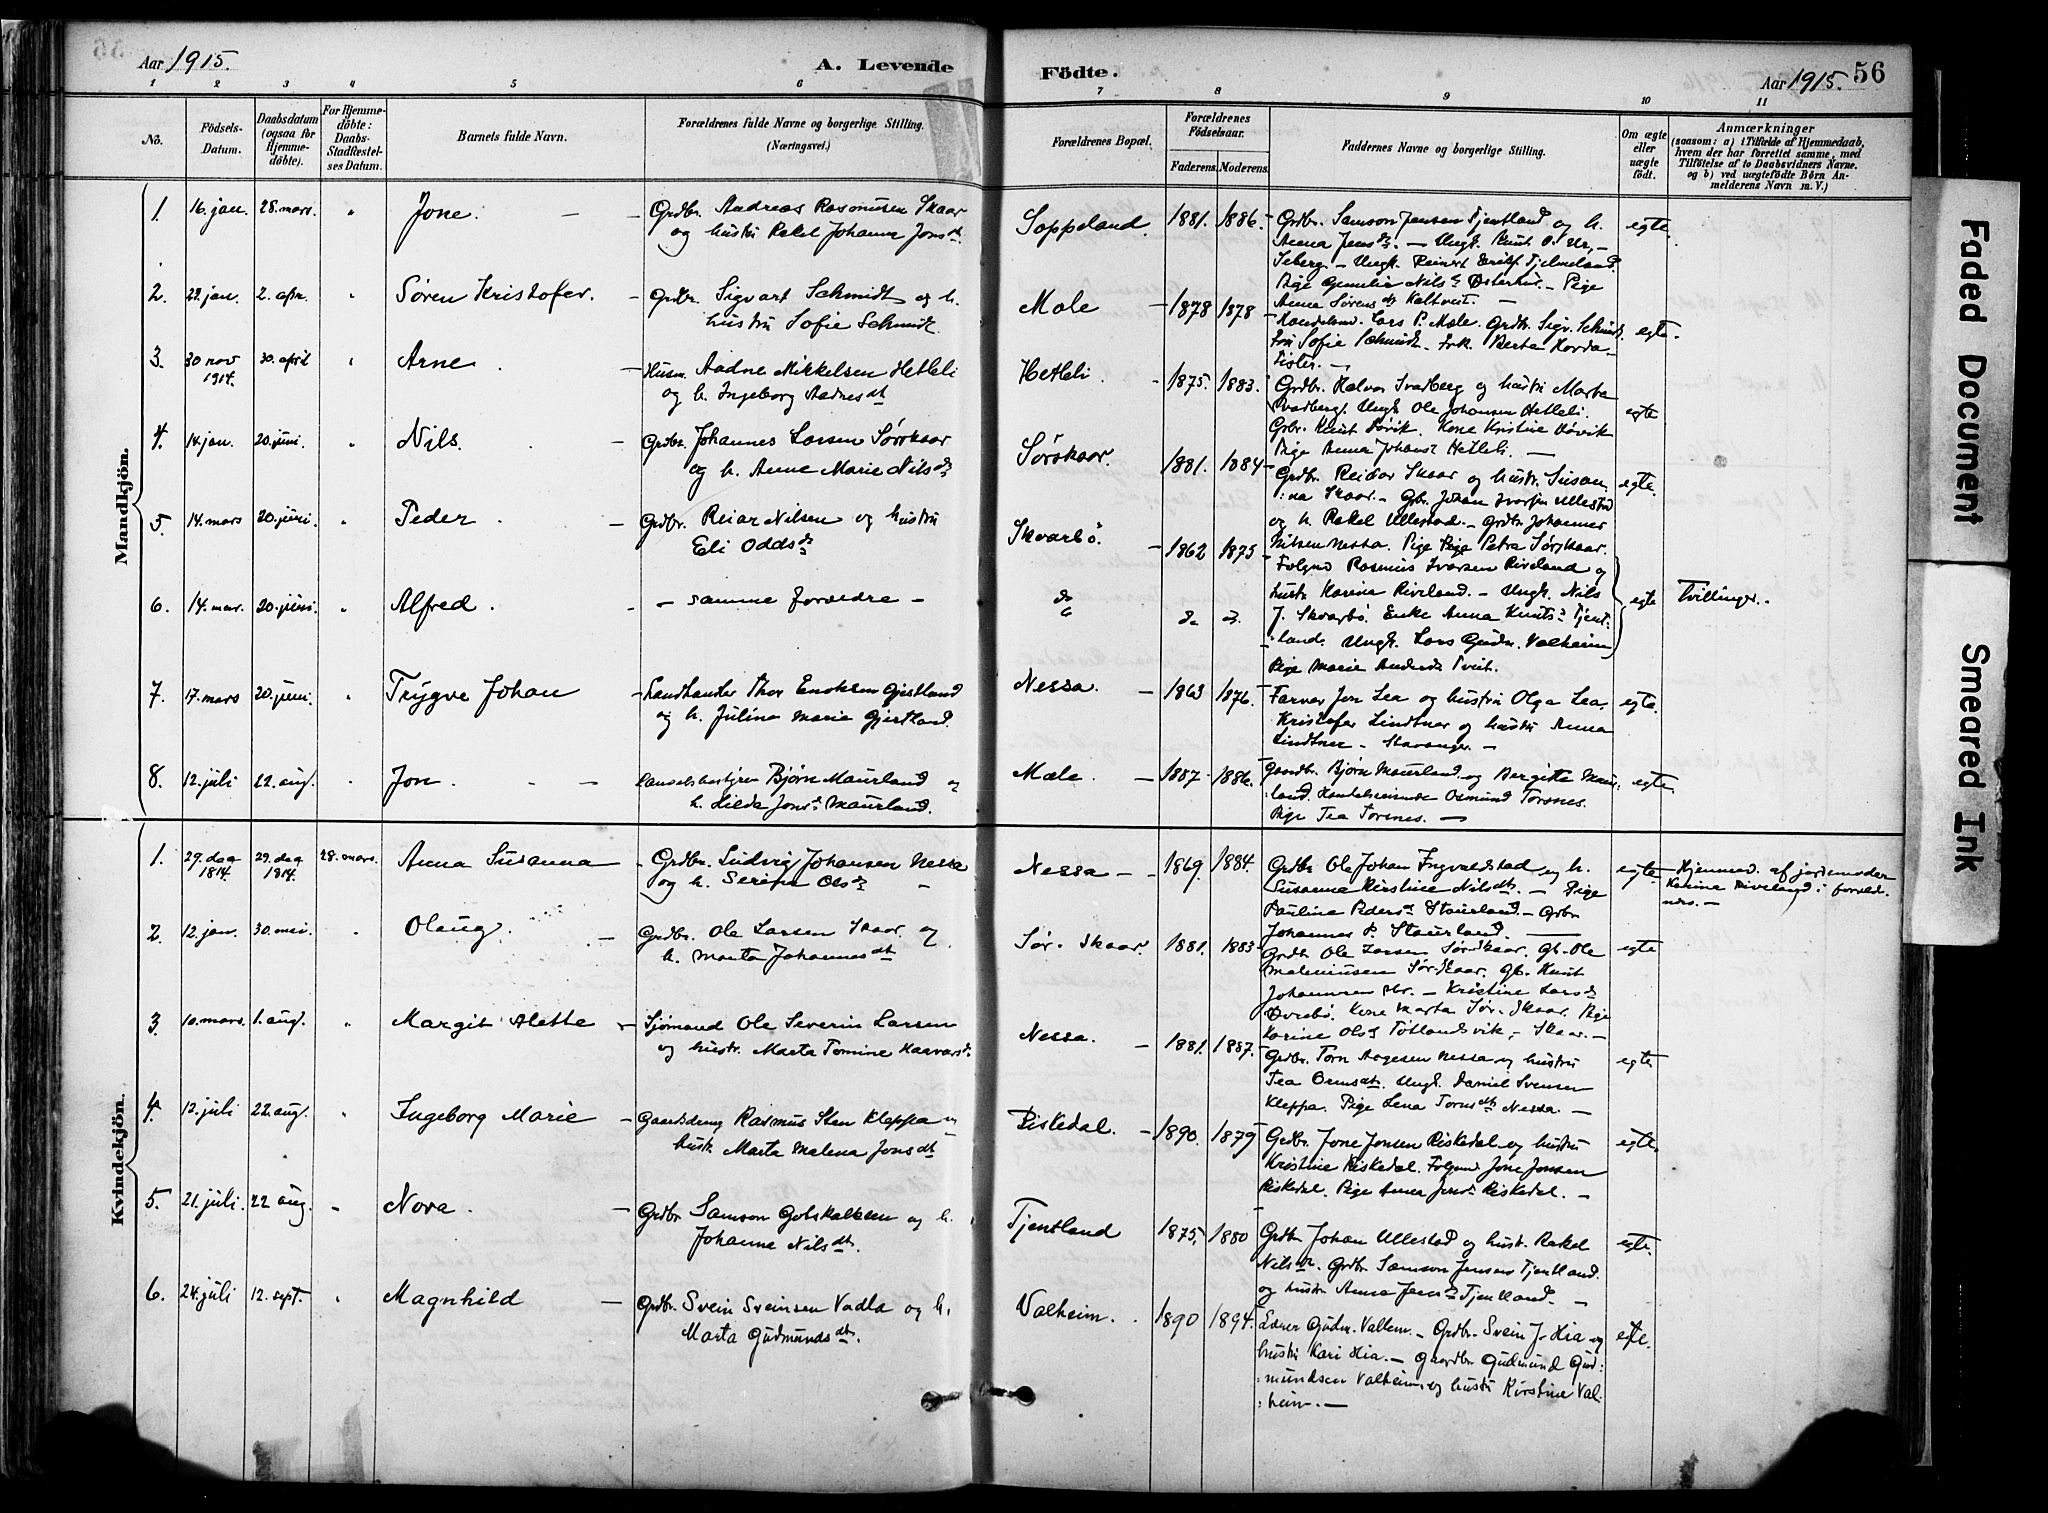 Aar 1915.
A. Levende Födte.
Aar 1915. 56
1 2 3 4 5 6 7 8 9 10 11
No.
Födsels-Datum.
Daabsdatum (ogsaa for Hjemmedöbte).
For Hjemmedöbte: Daabs-Stadfestelses Datum.
Barnets fulde Navn.
Forældrenes fulde Navne og borgerlige Stilling. (Næringsvei.)
Forældrenes Bopæl.
Forældrenes Födselsaar.
Faderens. Moderens.
Faddernes Navne og borgerlige Stilling.
Om ægte eller uægte födt.
Anmærkninger
(saasom: a) i Tilfælde af Hjemmedaab, hvem der har forrettet samme, med Tilföielse af to Daabsvidners Navne. og b) ved uægtefödte Börn Anmelderens Navn m. V.)
Mandkjön.
1. 16. jan. 28. mars. " Jone. Grdbr. Andreas Rasmusen Skaar
og hustru Rakel Johanne Jonsdt.
Soppeland. 1881. 1886. Grdbr. Samson Jensen Tjentland og h.
Anna Jensdt. egte.
2. 22. jan. 2. apr. " Søren Kristofer. Grdbr. Sigvart Schmidt og h.
hustru Sofie Schmidt.
Mæle 1878 1878 egte.
3. 30 nov 1914. 30. april " Arne Husm. Aadne Mikkelsen Hetleli
og h. Ingeborg Aadnesdt
Hetleli. 1875. 1883. Grdbr. Halvor Svadberg og hustru Marta
Svadberg. Ungk. Ole Johansen Hetleli. egte
4. 14. jan. 20. juni. " Nils. Grdbr. Johannes Larsen Sørskaar
og h. Anne Marie Nilsdt
Pige Anna Johansdt Hetleli.
Sørskaar. 1881. 1884 Grdbr. Reidar Skaar og hustr. Susanna Skaar. egte.
og h. Rakel Ullestad. Grdbr. Johannes
Nilsen Nessa. Pige Petra Sørskaar.
5. 14. mars 20. juni. " Peder. Grdbr. Reiar Nilsen og hustru
Eli Oddsdt
Skvarbø. 1862 1875 Folgmd Rasmus Ivarsen Riveland og
hustr. Karine Riveland. Ungk. Nils
6. 14. mar. 20. juni. " Alfred. samme forældre
do do do J. Skvarbø. Enke Anna Knutsdt Tjentland. Ungk. Lars Gudm. Valheim egte Tvillinger.
Pige Marie Andersdt Tveit.
7. 17. mars 20. juni. " Trygve Johan Landhandler Thor Enoksen Gjestland
og h. Juline Marie Gjestland.
Nessa. 1863 1876. Farver Jon Lea og hustru Olga Lea. egte.
Kristofer Lindtner og hustru Anna
Lindtner. Stavanger.
8. 12. juli 22. aug. " Jon. Bjørn Maurland og
h. Hilda Jonsdt Maurland.
Mæle. 1887 1886. Gaardbr. Bjørn Maurland og Bergitte Maurland. Osmund Torsnes. egte.
Pige Tea Torsnes.
Kvindekjön.
1. 29. des 1814. 29. des 1814. 28. mars. Anna Susanna Grdbr. Ludvig Johansen Nessa
og h. Serine Olsdt
Nessa 1869 1884. Grdbr. Ole Johan Ingvaldstad og h. egte Hjemmed. af jordemoder
Susanna Kirstine Nilsdt. Pige Karine Riveland i forældres.
Pauline Pedersdt Staurland. Grdbr
Johannes P. Staurland.
2. 12. jan. 30. mai. " Olaug. Grdbr. Ole Larsen Skaar og
h. Marta Johannesdt
Sør-Skaar. 1881. 1883 Grdbr. Ole Larsen Sør-Skaar. Gb. Ole egte
Malenius­en Sør-Skaar. Gb. Knut
Kone Marta Sør-Skaar. Pige
Karine Olsdt Tøtlandsvik, Skaar.
3. 10. mars. 1. aug. " Margit Alette Sjømand Ole Severin Larsen
og hustr. Marta Tomine Haavarsdt
Nessa. 1881. 1887. Grdbr. Torn Aagesen Nessa og hustru egte
Tea Ormsdt. Ungk. Daniel Svensen
Kleppa. Pige Lena Tornsdt Nessa.
4. 12. juli 22. aug. " Ingeborg Marie Gaardsdreng Rasmus Sten Kleppa og
hustr. Marta Malena Jonsdt
Riskedal. 1890. 1879 Grdbr. Jone Jonsen Riskedal og hustru egte.
Kristine Riskedal. Folgmd Jone Jonsen
Riskedal. Pige Anna Jonsdt Riskedal.
5. 21. juli. 22 aug. " Nora. Grdbr Samson Gotskalksen og h.
Johanne Nilsdt.
Tjentland 1875. 1880 Grdbr. Johan Ullestad og hustr. Rakel egte.
Nilsdt. Grdbr. Samson Jensen Tjentland.
og hustr. Anna Jensdt Tjentland.
6. 24. juli 12. sept. " Magnhild Grdbr. Svein Sveinsen Vadla og h.
Marta Gudmundsdt.
Valheim. 1890 1894. Lærer Gudm. Vallem. Grdbr. Svein J. Hia og egte.
hustru Kari Hia. Gaardbr. Gudmund Gudmundsen Valheim og hustru Kirstine Valheim.
Faded Document
Smeared Ink